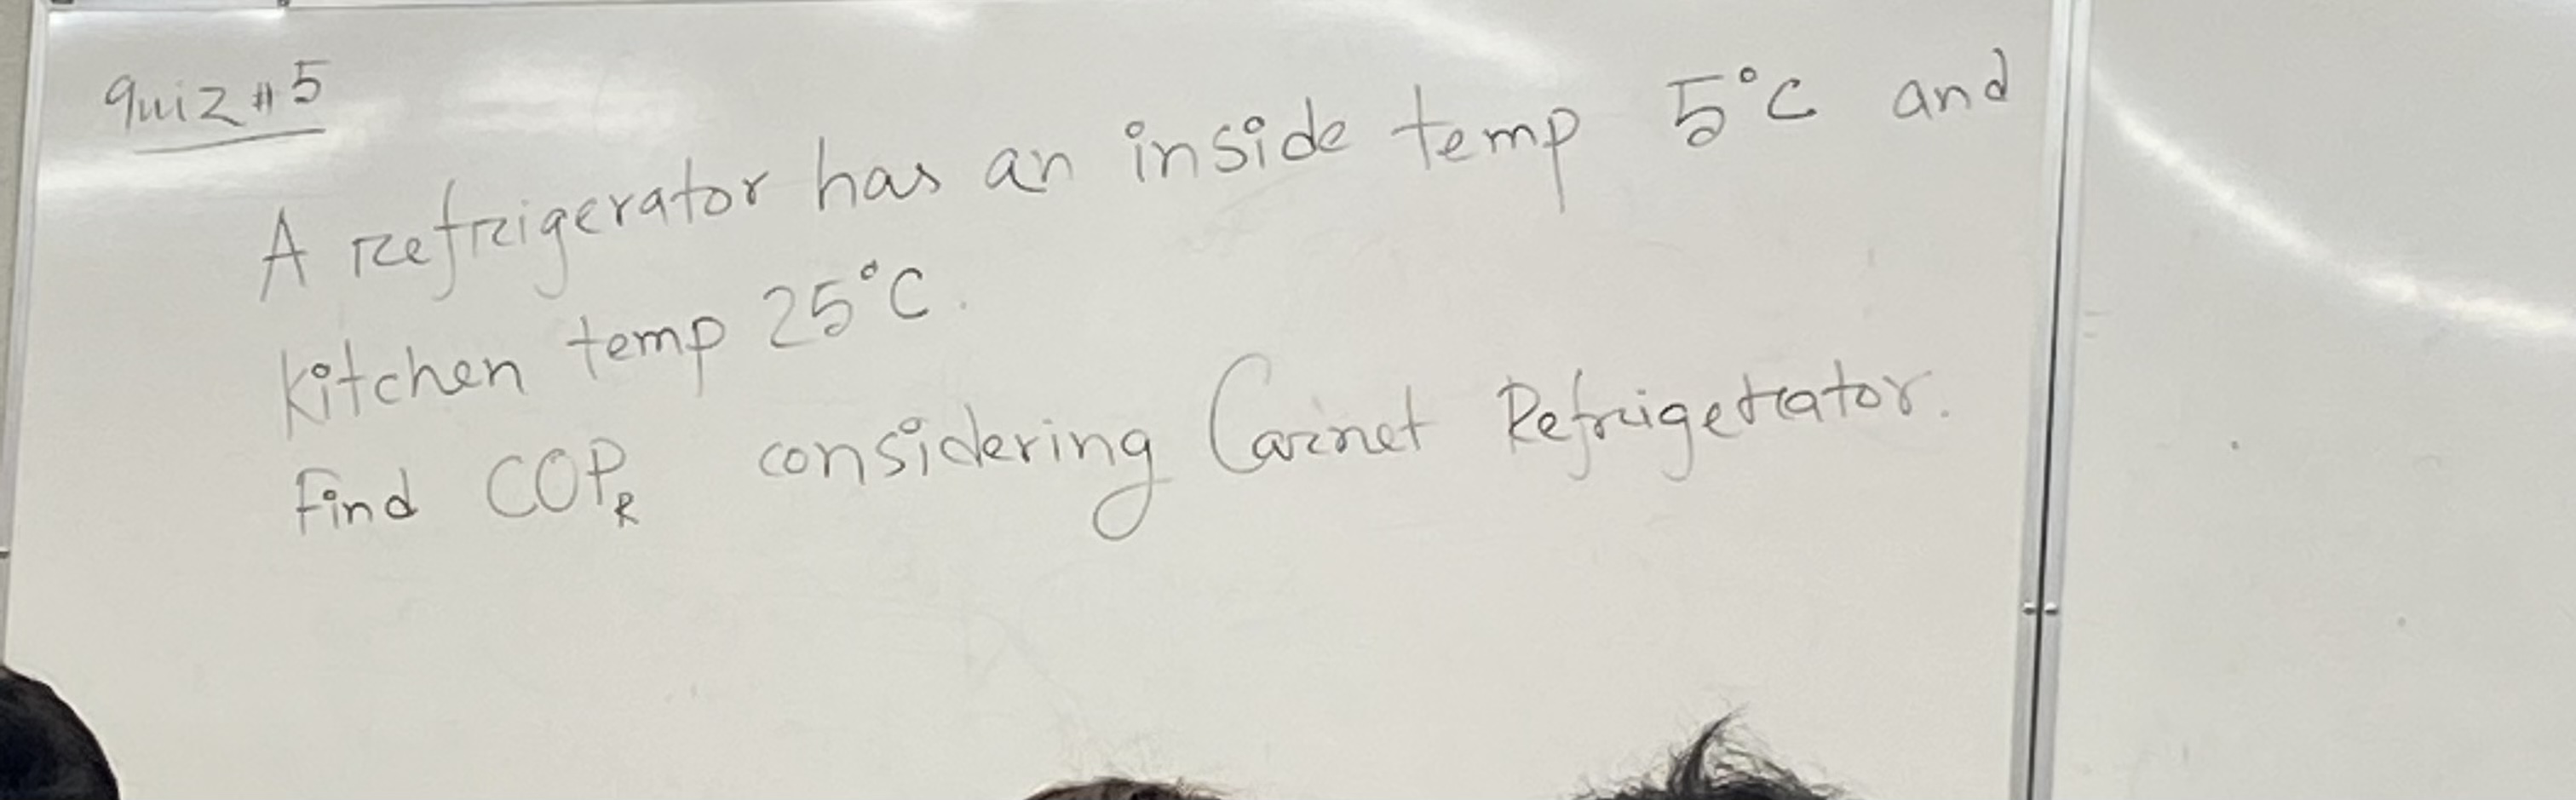 quiz #5
A refrigerator has an inside temp 5°C and
kitchen temp 25°C.
Find COP_R considering Carnet Refrigerator.